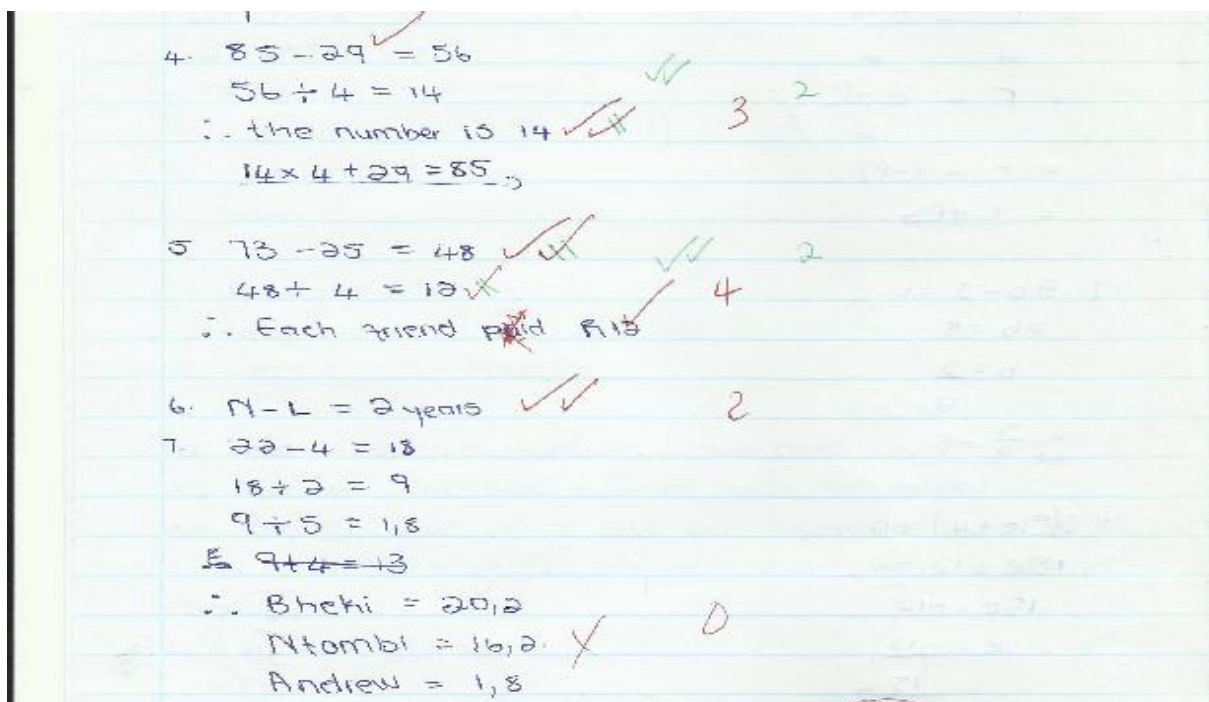 4. 85 - 29 = 56
56 ÷ 4 = 14
2
∴ the number is 14
3
14 × 4 + 29 = 85
5 73 - 25 = 48
2
48 ÷ 4 = 12
4
∴ Each friend paid R12
6. N - L = 2 years
2
7. 22 - 4 = 18
18 ÷ 2 = 9
9 ÷ 5 = 1,8
9 + 4 = 13
∴ Bheki = 20,2
0
Ntombi = 16,2.
Andrew = 1,8